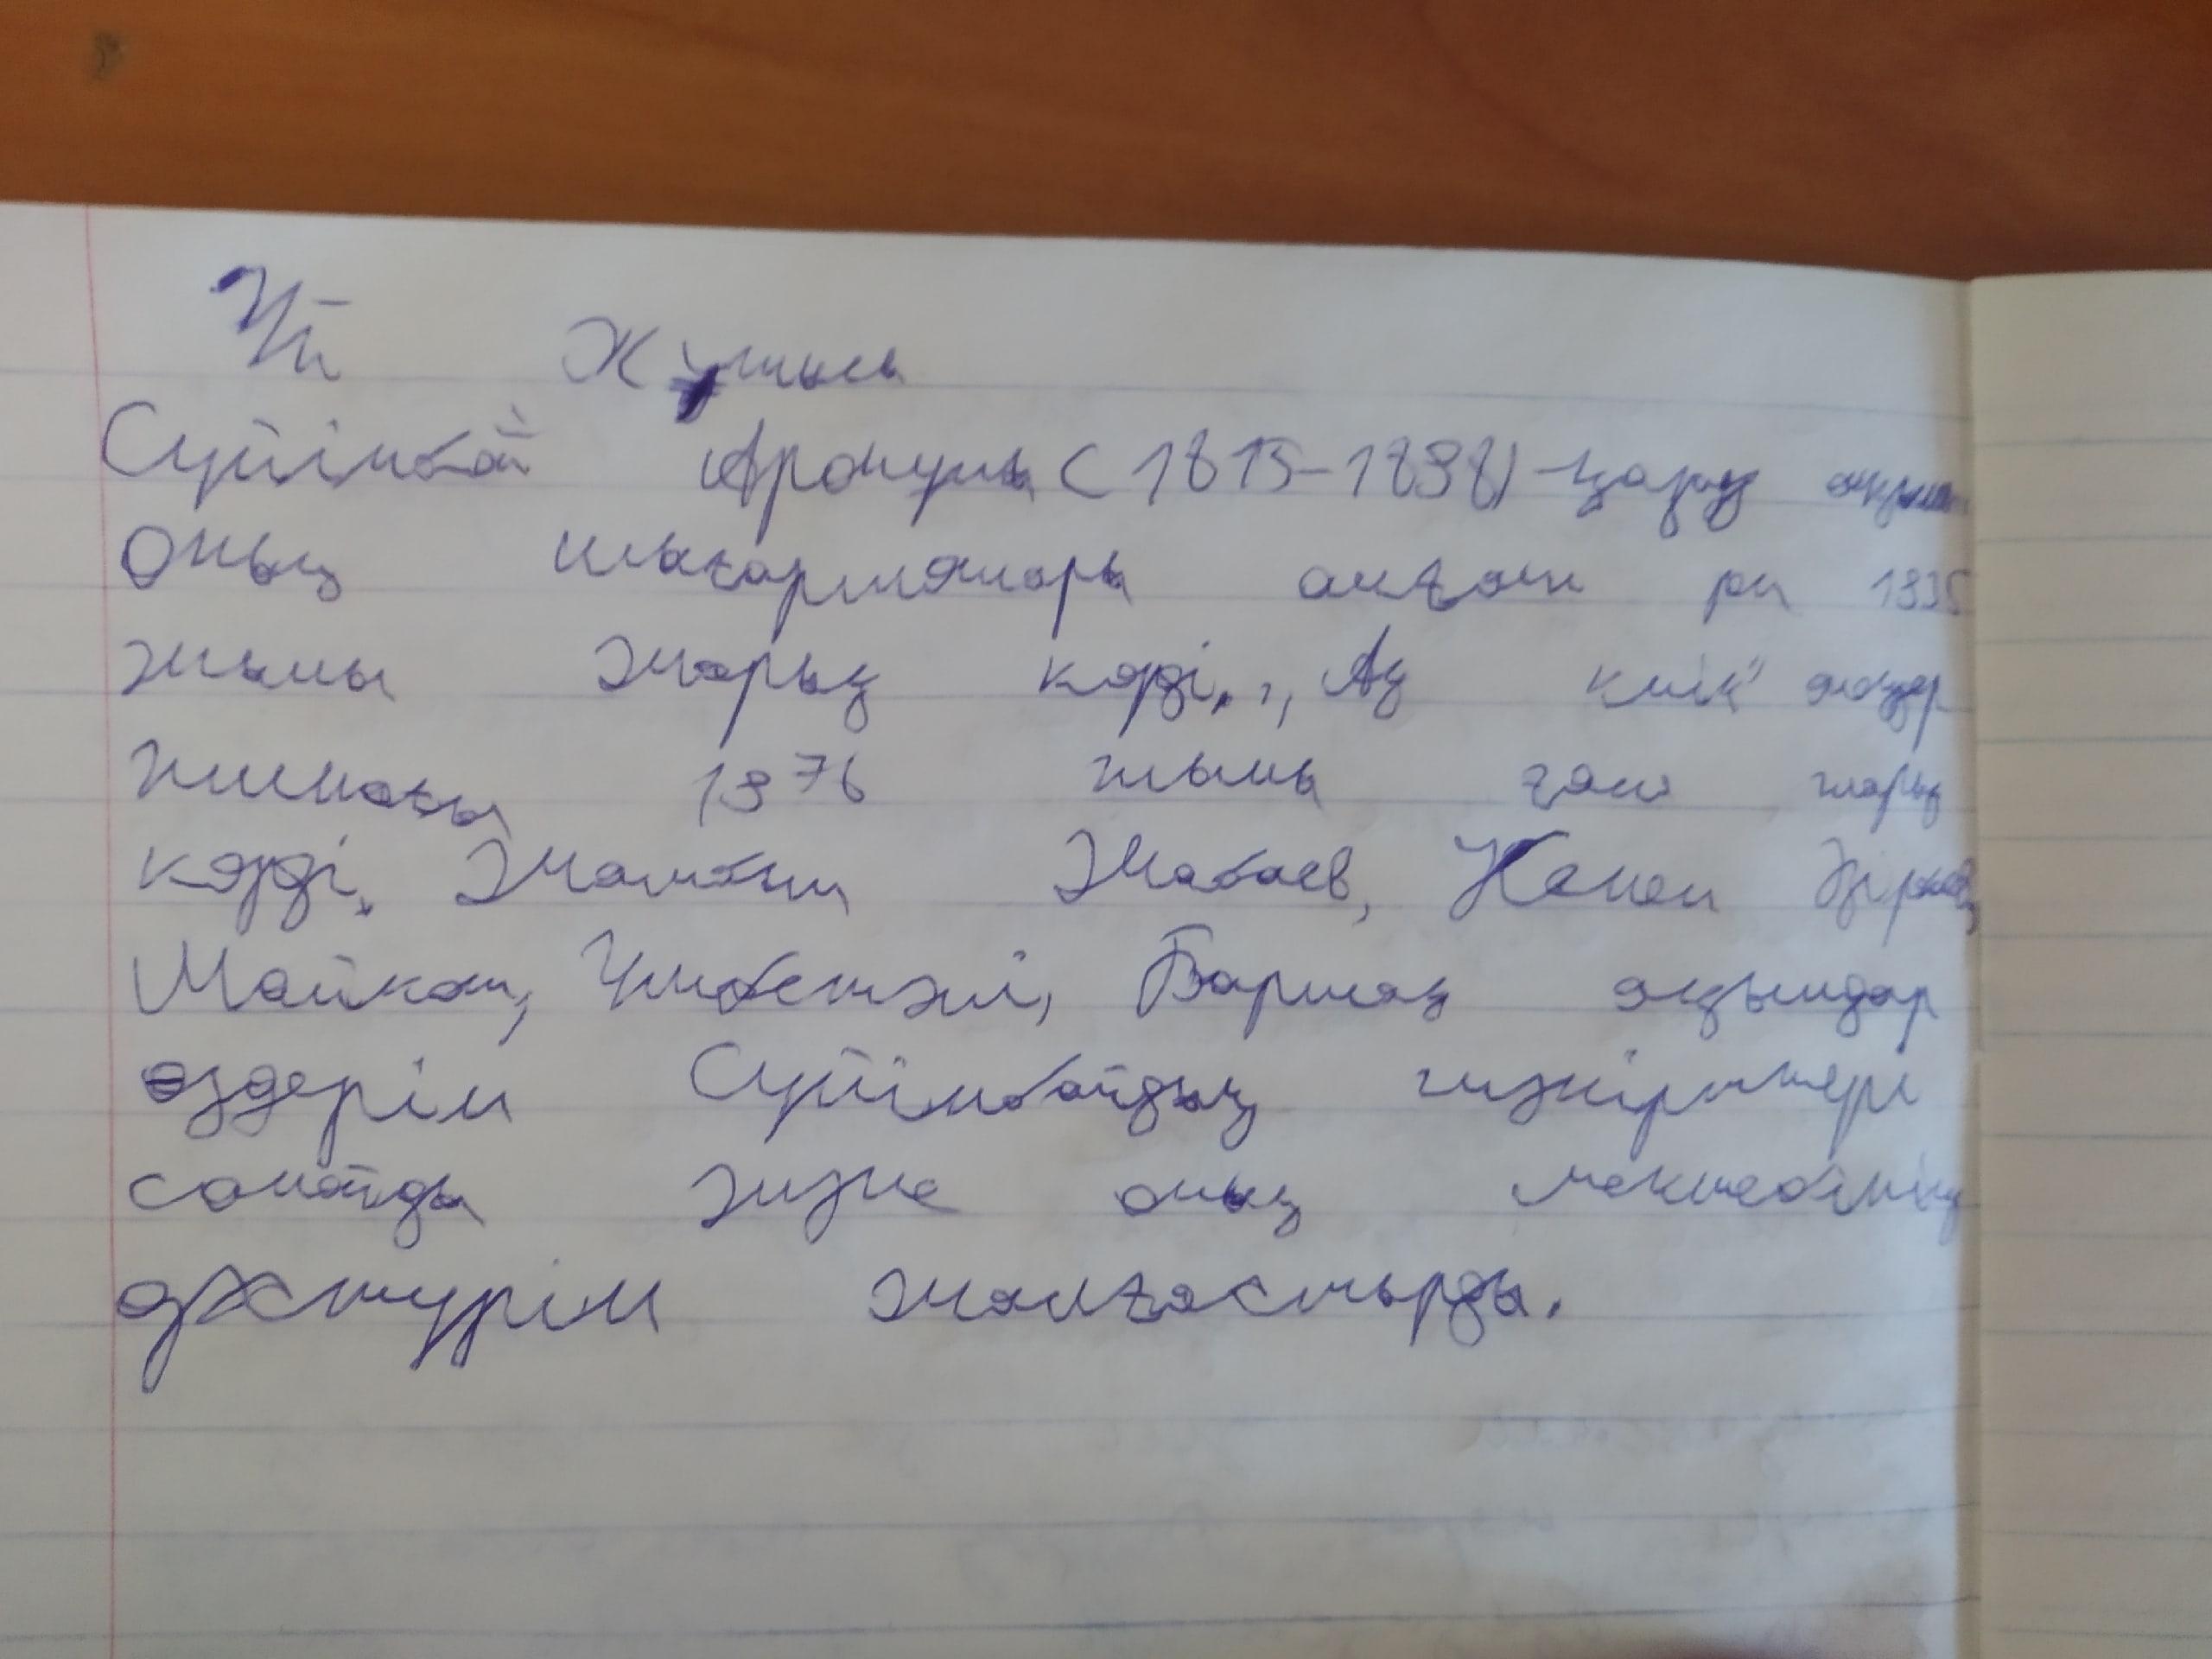 Үй Жұмысы
Сүйінбай Аронұлы (1815-1898) - қазақ ақын
Оның шығармалары алғаш рет 1935
жылы жарық көрді. „Ақ киік" жыр
жинағы 1976 жылы ғана жарық
көрді. Жамбыл Жабаев, Кенен Әзірбаев,
Майкөт, Үмбетәлі, Бармақ ақындар
өздерін Сүйінбайдың шәкірттері
санайды және оның мектебінің
дәстүрін жалғастырды.